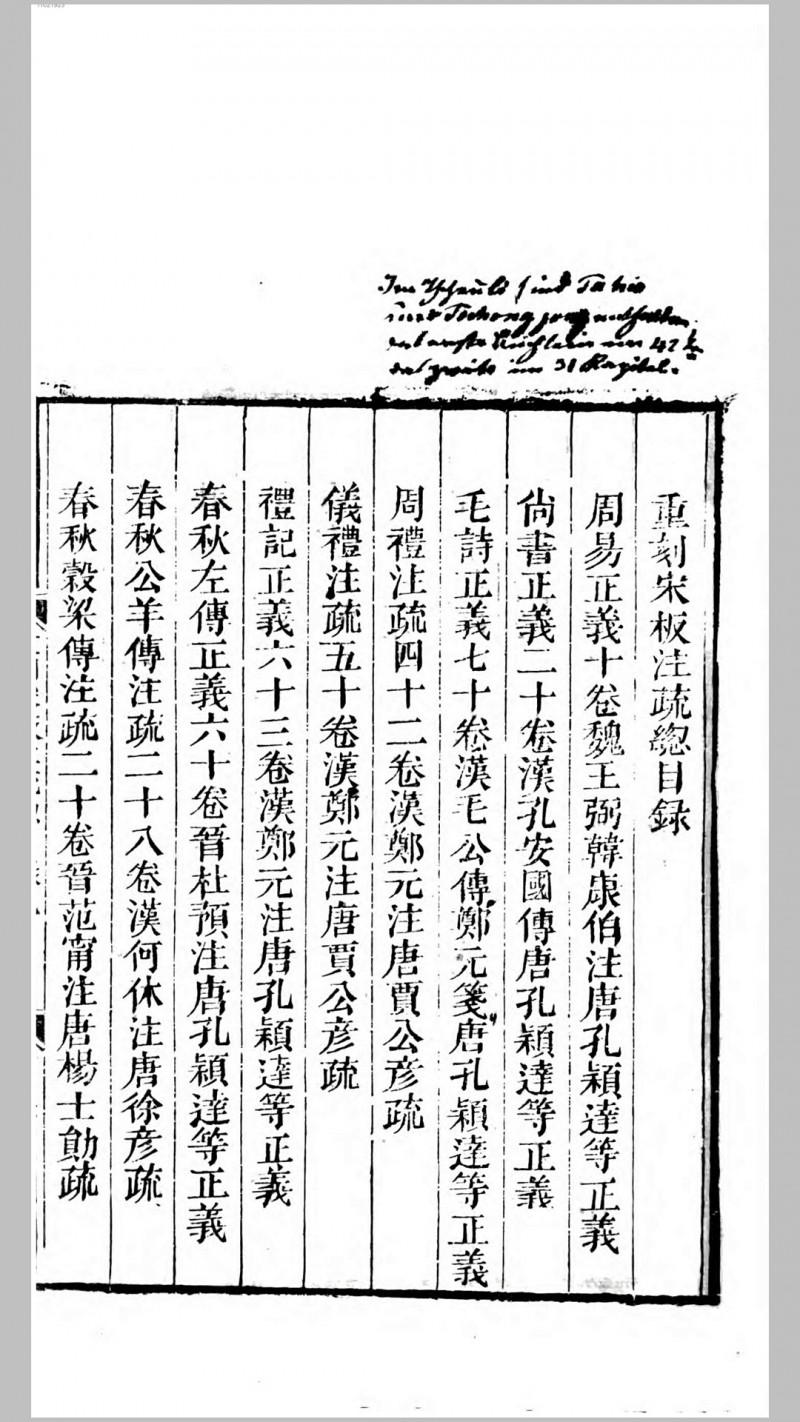 Im
sind Ta hio
und
42
im 31 Kapitel.
重刻宋板注疏總目録
周易正義十卷魏王弼韓康伯注唐孔穎達等正義
尙書正義二十卷漢孔安國傳唐孔穎達等正義
毛詩正義七十卷漢毛公傳鄭元箋唐孔穎達等正義
周禮注疏四十二卷漢鄭元注唐賈公彦疏
儀禮注疏五十卷漢鄭元注唐賈公彦疏
禮記正義六十三卷漢鄭元注唐孔穎達等正義
春秋左傳正義六十卷晉杜預注唐孔穎達等正義
春秋公羊傳注疏二十八卷漢何休注唐徐彦疏
春秋穀梁傳注疏二十卷晉范甯注唐楊士勛疏